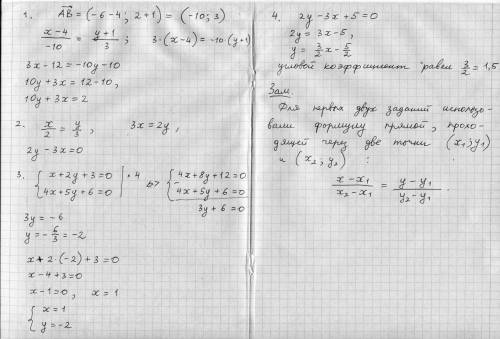 1. AB = (-6-4; 2+1) = (-10; 3)
x-4/-10 = y+1/3 ; 3·(x-4) = -10·(y+1)
3x-12 = -10y-10
10y+3x = 12-10,
10y+3x = 2
2. x/2 = y/3 , 3x = 2y,
2y-3x = 0
3. { x+2y+3=0 |·4 <=> { 4x+8y+12=0
4x+5y+6=0 4x+5y+6=0
3y+6=0
3y = -6
y = -6/3 = -2
x+2·(-2)+3=0
x-4+3=0
x-1=0, x=1
{ x=1
y=-2
4. 2y-3x+5=0
2y = 3x-5,
y = 3/2x - 5/2
угловой коэффициент равен 3/2 = 1,5
Зам.
Для первых двух заданий использо-
вали формулу прямой, прохо-
дящей через две точки (x₁; y₁)
и (x₂; y₂) :
x-x₁/x₂-x₁ = y-y₁/y₂-y₁ .